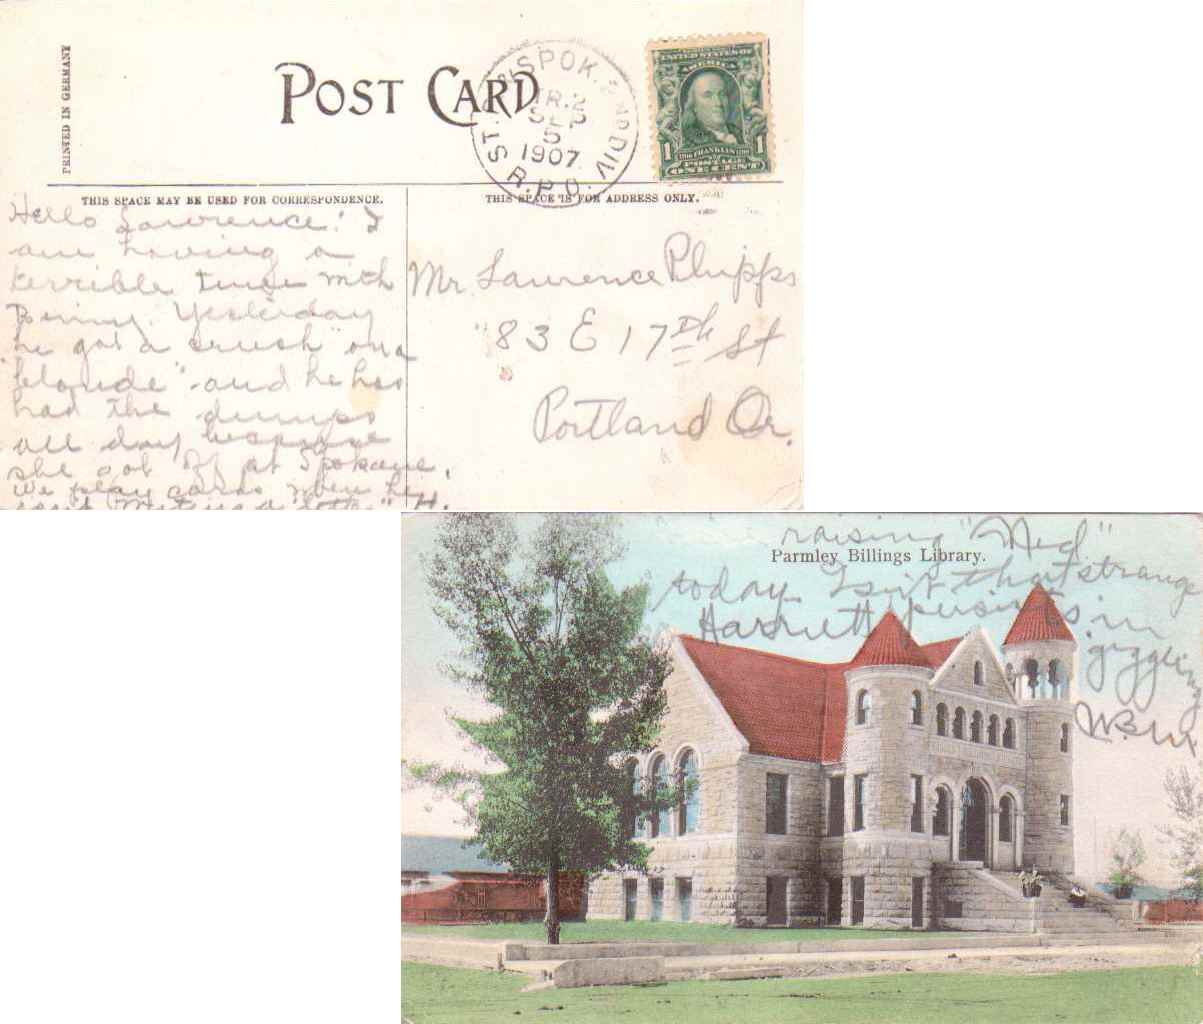 PRINTED IN GERMANY
POST CARD
ST. P. & SPOK. DIV.
TR. 2
SEP
5
1907
R.P.O.
UNITED STATES OF
AMERICA
1 FRANKLIN 1
POSTAGE
ONE CENT
THIS SPACE MAY BE USED FOR CORRESPONDENCE.
THIS SPACE IS FOR ADDRESS ONLY.
Hello Lawrence: I
am having a
terrible time with
Yesterday
he got a "crush" on a
"blonde" - and he has
had the dumps
all day because
she got off at Spokane.
We play cards when he
H.
Mr. Lawrence Phipps
83 E 17th St
Portland Or.
raising "Med"
Parmley Billings Library.
today. Isn't that strange
Harriett persists in
giggling